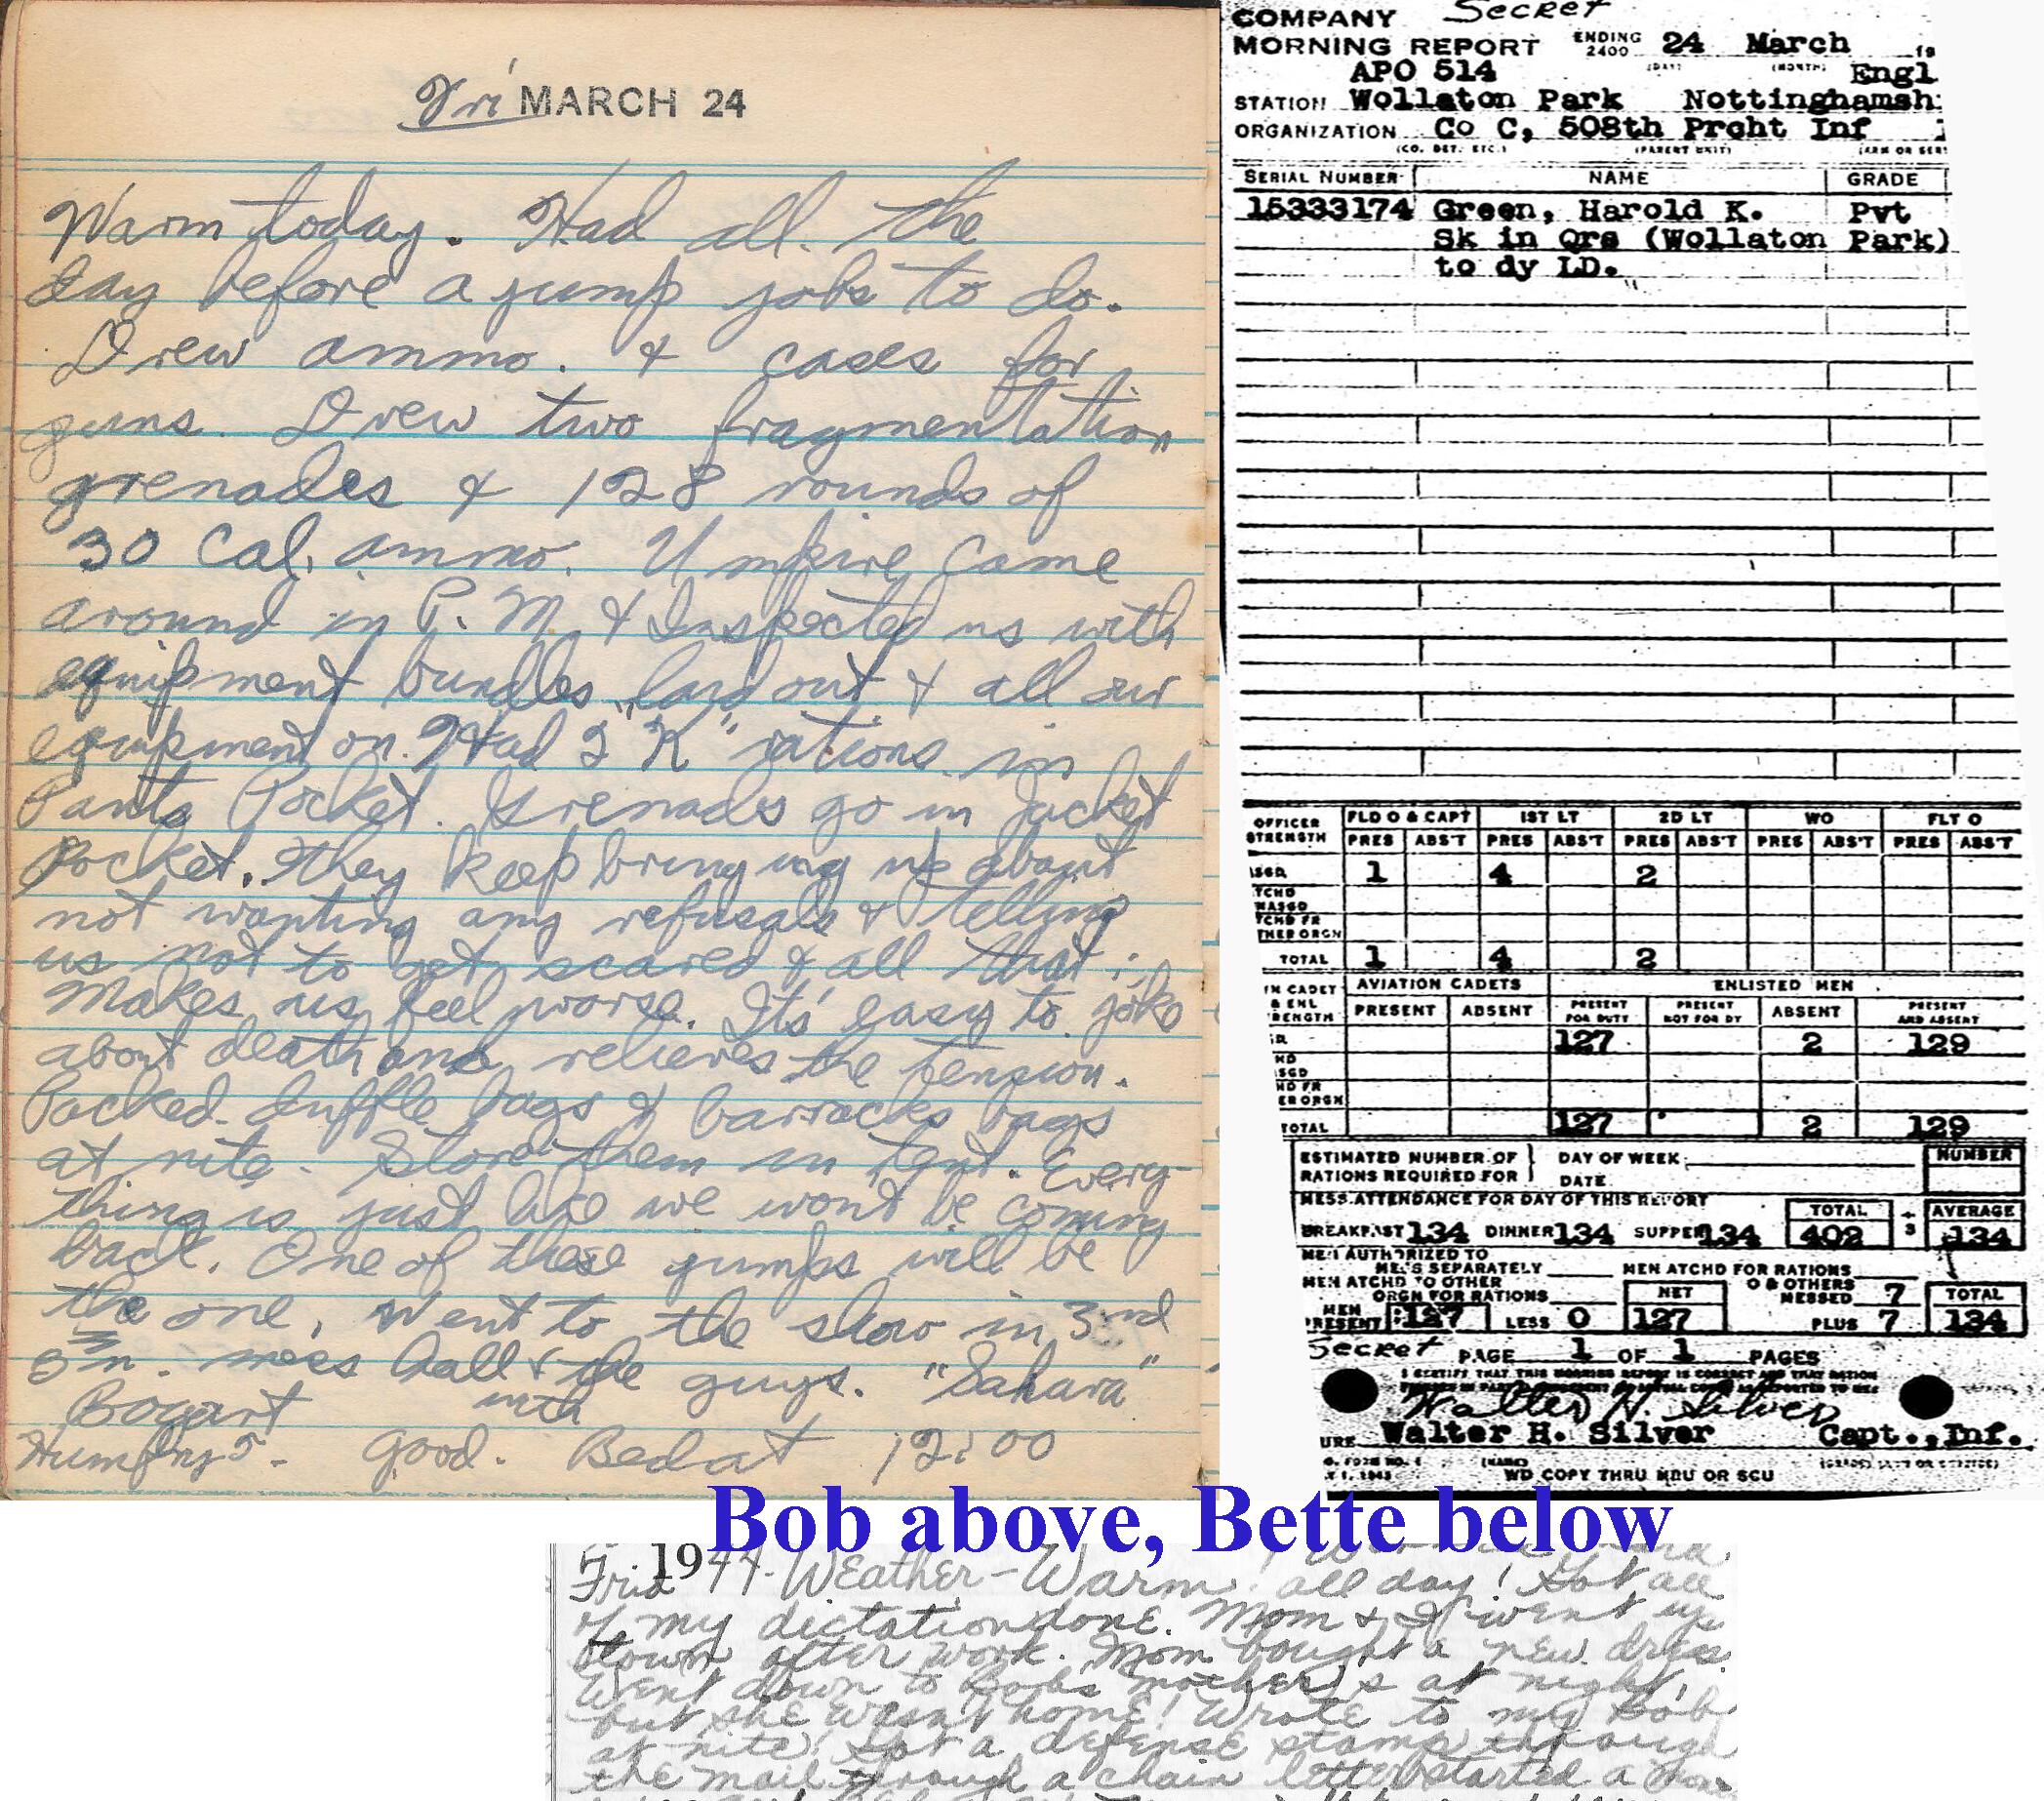 Fri MARCH 24
Warm today. Had all the
day before a jump jobs to do.
Drew ammo. & cases for
guns. Drew two fragmentation
grenades & 128 rounds of
30 Cal. ammo. Umpire came
around in P.M. & Inspected us with
equipment bundles laid out & all our
equipment on. Had 2 "K" rations in
Pants Pocket. Grenades go in Jacket
Pocket. They keep bringing up about
not wanting any refusals & telling
us not to get scared & all that;
Makes us feel worse. It's easy to joke
about death and relieves the tension.
Packed duffle bags & barracks bags
at nite. Store them in tent. Every-
thing is just like we won't be coming
back. One of these jumps will be
the one. Went to the show in 3rd
Bn. mess hall & the guys. "Sahara"
Bogart with
Humphry. Good. Bed at 12:00
Secret
COMPANY
MORNING REPORT ENDING 2400 24 March 19
(DAY) (MONTH)
APO 514 Engl
STATION Wollaton Park Nottinghamsh
ORGANIZATION Co C, 508th Prcht Inf
(CO. DET. ETC.) (PARENT UNIT) (ARM OR SER
SERIAL NUMBER NAME GRADE
15333174 Green, Harold K. Pvt
Sk in Qrs (Wollaton Park)
to dy LD.
OFFICER STRENGTH FLD O & CAPT 1ST LT 2D LT WO FLT O
PRES ABS'T PRES ABS'T PRES ABS'T PRES ABS'T PRES ABS'T
ASGD 1 4 2
TCHD
TCHD FR
THER ORGN
TOTAL 1 4 2
N CADET & ENL RENGTH AVIATION CADETS ENLISTED MEN
PRESENT ABSENT PRESENT FOR DUTY PRESENT NOT FOR DY ABSENT PRESENT AND ABSENT
127 2 129
SGD
HD FR
ER ORGN
TOTAL 127 2 129
ESTIMATED NUMBER OF RATIONS REQUIRED FOR } DAY OF WEEK DATE NUMBER
MESS ATTENDANCE FOR DAY OF THIS REPORT TOTAL ÷ 3 AVERAGE
BREAKFAST 134 DINNER 134 SUPPER 134 402 134
MEN AUTHORIZED TO
MESS SEPARATELY MEN ATCHD FOR RATIONS
MEN ATCHD TO OTHER
ORGN FOR RATIONS NET O & OTHERS MESSED 7 TOTAL
MEN PRESENT 127 LESS 0 127 PLUS 7 134
Secret PAGE 1 OF 1 PAGES
Walter H. Silver
URE Walter H. Silver Capt., Inf.
WD COPY THRU MRU OR SCU
Bob above, Bette below
1944. Weather - Warm! all day! Got all
of my dictation done. Mom & I went up
town after work. Mom bought a new dress.
Went down to Bob's mother's at night,
but she wasn't home! Wrote to my Bob
at nite! Got a defense stamp through
the mail through a chain letter started a